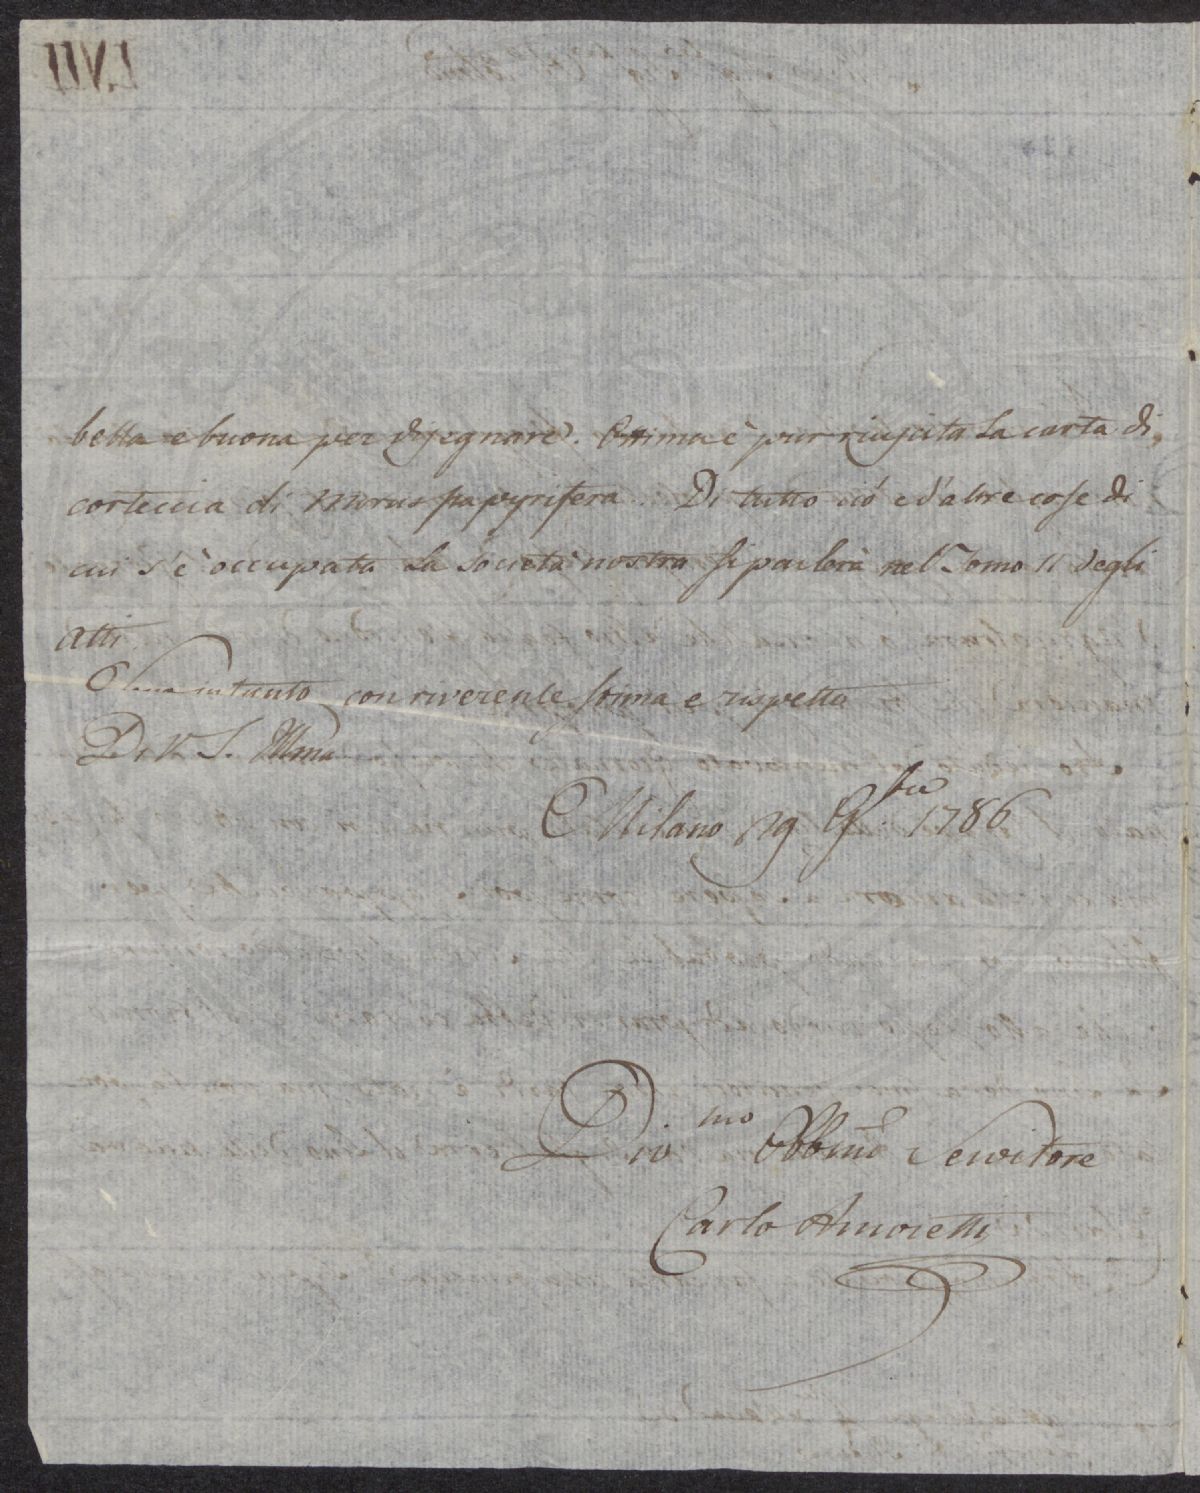 bella e buona per disegnare. Ottima è pur riuscita la carta di
corteccia di Morus papyrifera. Di tutto ciò e d'altre cose di
cui s'è occupata la Società nostra si parlerà nel Tomo II degli
Atti.
intanto con riverente stima e rispetto
Di V. S. Illma
Milano 19 1786
Divmo Obbmo Servitore
Carlo Amoretti